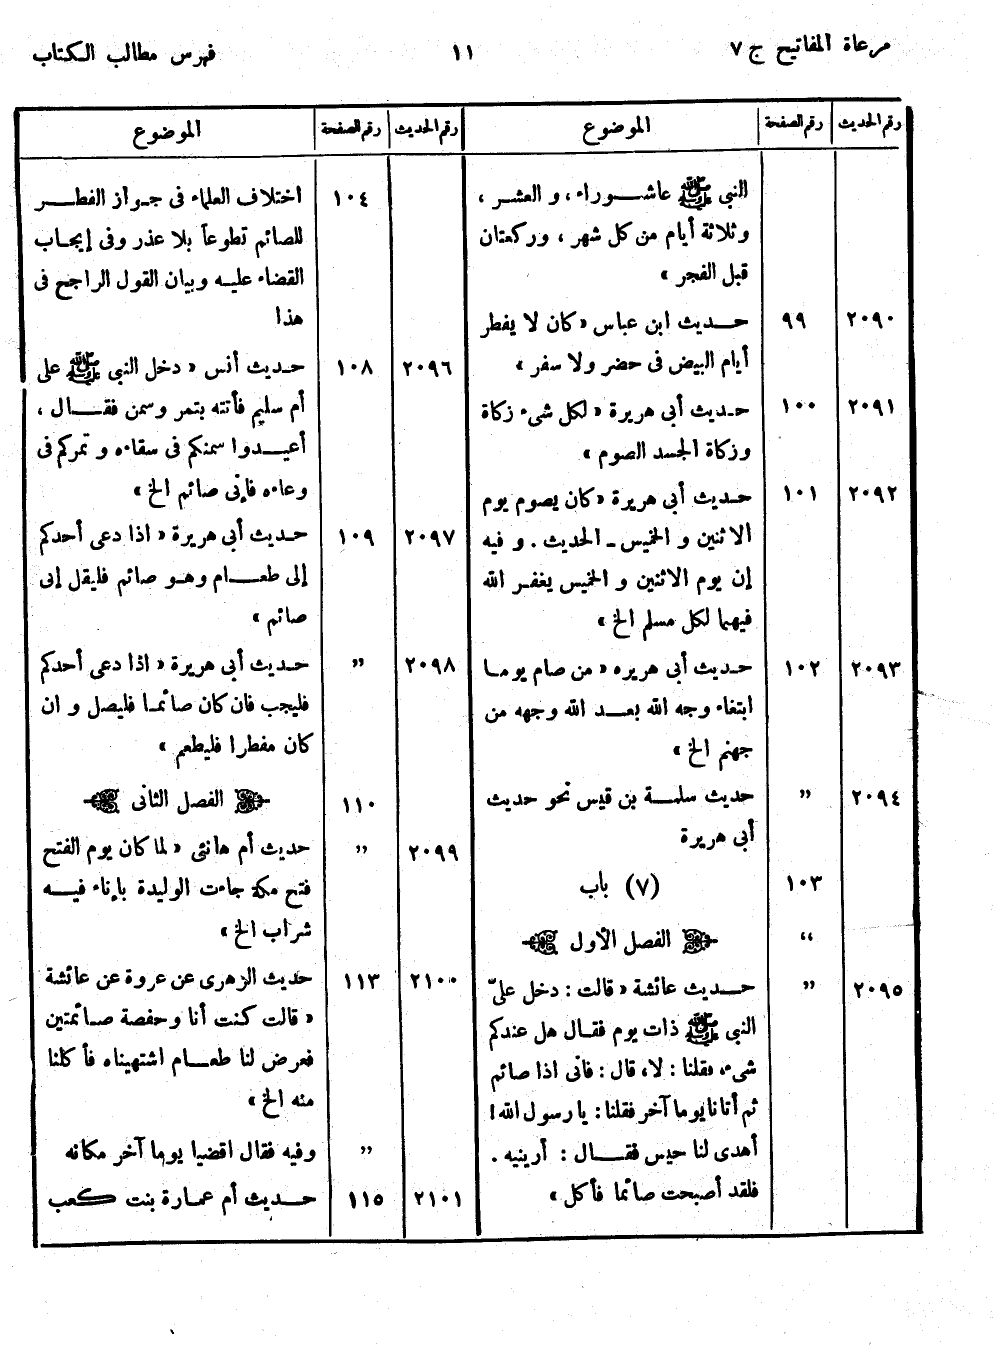 مرعاة المفاتيح ج ٧ ١١ فهرس مطالب الكتاب
رقم الحديث رقم الصفحة الموضوع
النبى ﷺ عاشوراء ، و العشر ،
وثلاثة أيام من كل شهر ، وركعتان
قبل الفجر »
٢٠٩٠ ٩٩ حديث ابن عباس « كان لا يفطر
أيام البيض فى حضر ولا سفر »
٢٠٩١ ١٠٠ حديث أبى هريرة « لكل شىء زكاة
وزكاة الجسد الصوم »
٢٠٩٢ ١٠١ حديث أبى هريرة « كان يصوم يوم
الاثنين و الخميس ـ الحديث . و فيه
إن يوم الاثنين و الخميس يغفر الله
فيهما لكل مسلم الخ »
٢٠٩٣ ١٠٢ حديث أبى هريره « من صام يوما
ابتغاء وجه الله بعد الله وجهه من
جهنم الخ »
٢٠٩٤ ” حديث سلمة بن قيس نحو حديث
أبى هريرة
١٠٣ (٧) باب
“ الفصل الأول
٢٠٩٥ ” حديث عائشة « قالت : دخل علىّ
النبى ﷺ ذات يوم فقال هل عندكم
شىء، فقلنا : لا، قال : فانى اذا صائم
ثم أتانا يوما آخر فقلنا : يا رسول الله !
أهدى لنا حيس فقال : أرينيه .
فلقد أصبحت صائما فأكل »
رقم الحديث رقم الصفحة الموضوع
١٠٤ اختلاف العلماء فى جواز الفطر
للصائم تطوعاً بلا عذر وفى إيجاب
القضاء عليه وبيان القول الراجح فى
هذا
٢٠٩٦ ١٠٨ حديث أنس « دخل النبى ﷺ على
أم سليم فأتته بتمر وسمن فقال ،
أعيدوا سمنكم فى سقاءه و تمركم فى
وعاءه فإنى صائم الخ »
٢٠٩٧ ١٠٩ حديث أبى هريرة « اذا دعى أحدكم
إلى طعام وهو صائم فليقل إنى
صائم »
٢٠٩٨ ” حديث أبى هريرة « اذا دعى أحدكم
فليجب فان كان صائما فليصل و ان
كان مفطرا فليطعم »
١١٠ الفصل الثانى
٢٠٩٩ ” حديث أم هانئى « لما كان يوم الفتح
فتح مكة جاءت الوليدة بإناء فيه
شراب الخ »
٢١٠٠ ١١٣ حديث الزهرى عن عروة عن عائشة
« قالت كنت أنا وحفصة صائمتين
فعرض لنا طعام اشتهيناه فأكلنا
منه الخ »
” وفيه فقال اقضيا يوما آخر مكانه
٢١٠١ ١١٥ حديث أم عمارة بنت كعب